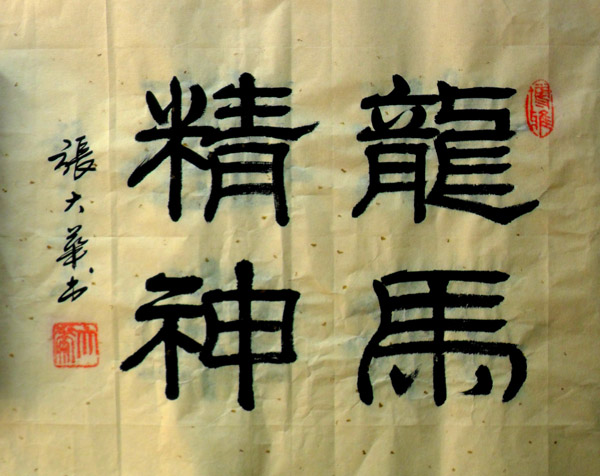 龍馬
精神
張大華书